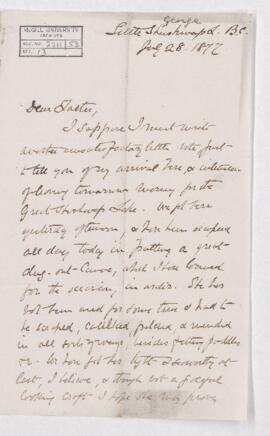 McGILL UNIVERSITY
ARCHIVES
ACC. NO. 2211/53
REF. 13
George
Little Shushwap L. B.C.
July 28. 1877
Dear Father,
I suppose I must write
another unsatisfactory little note just
to tell you of my arrival here, & intention
of leaving tomorrow morning for the
Great Shushwap Lake. We got here
yesterday afternoon, & have been occupied
all day today in putting a great
dug-out Canoe, which I have borrowed
for the occasion, in order. She has
not been used for some time & had to
be scraped, caulked, pitched, & mended
in all sorts of ways, besides getting paddles
We have got her tight & seaworthy at
last, I believe, & though not a
looking craft I hope she may prove